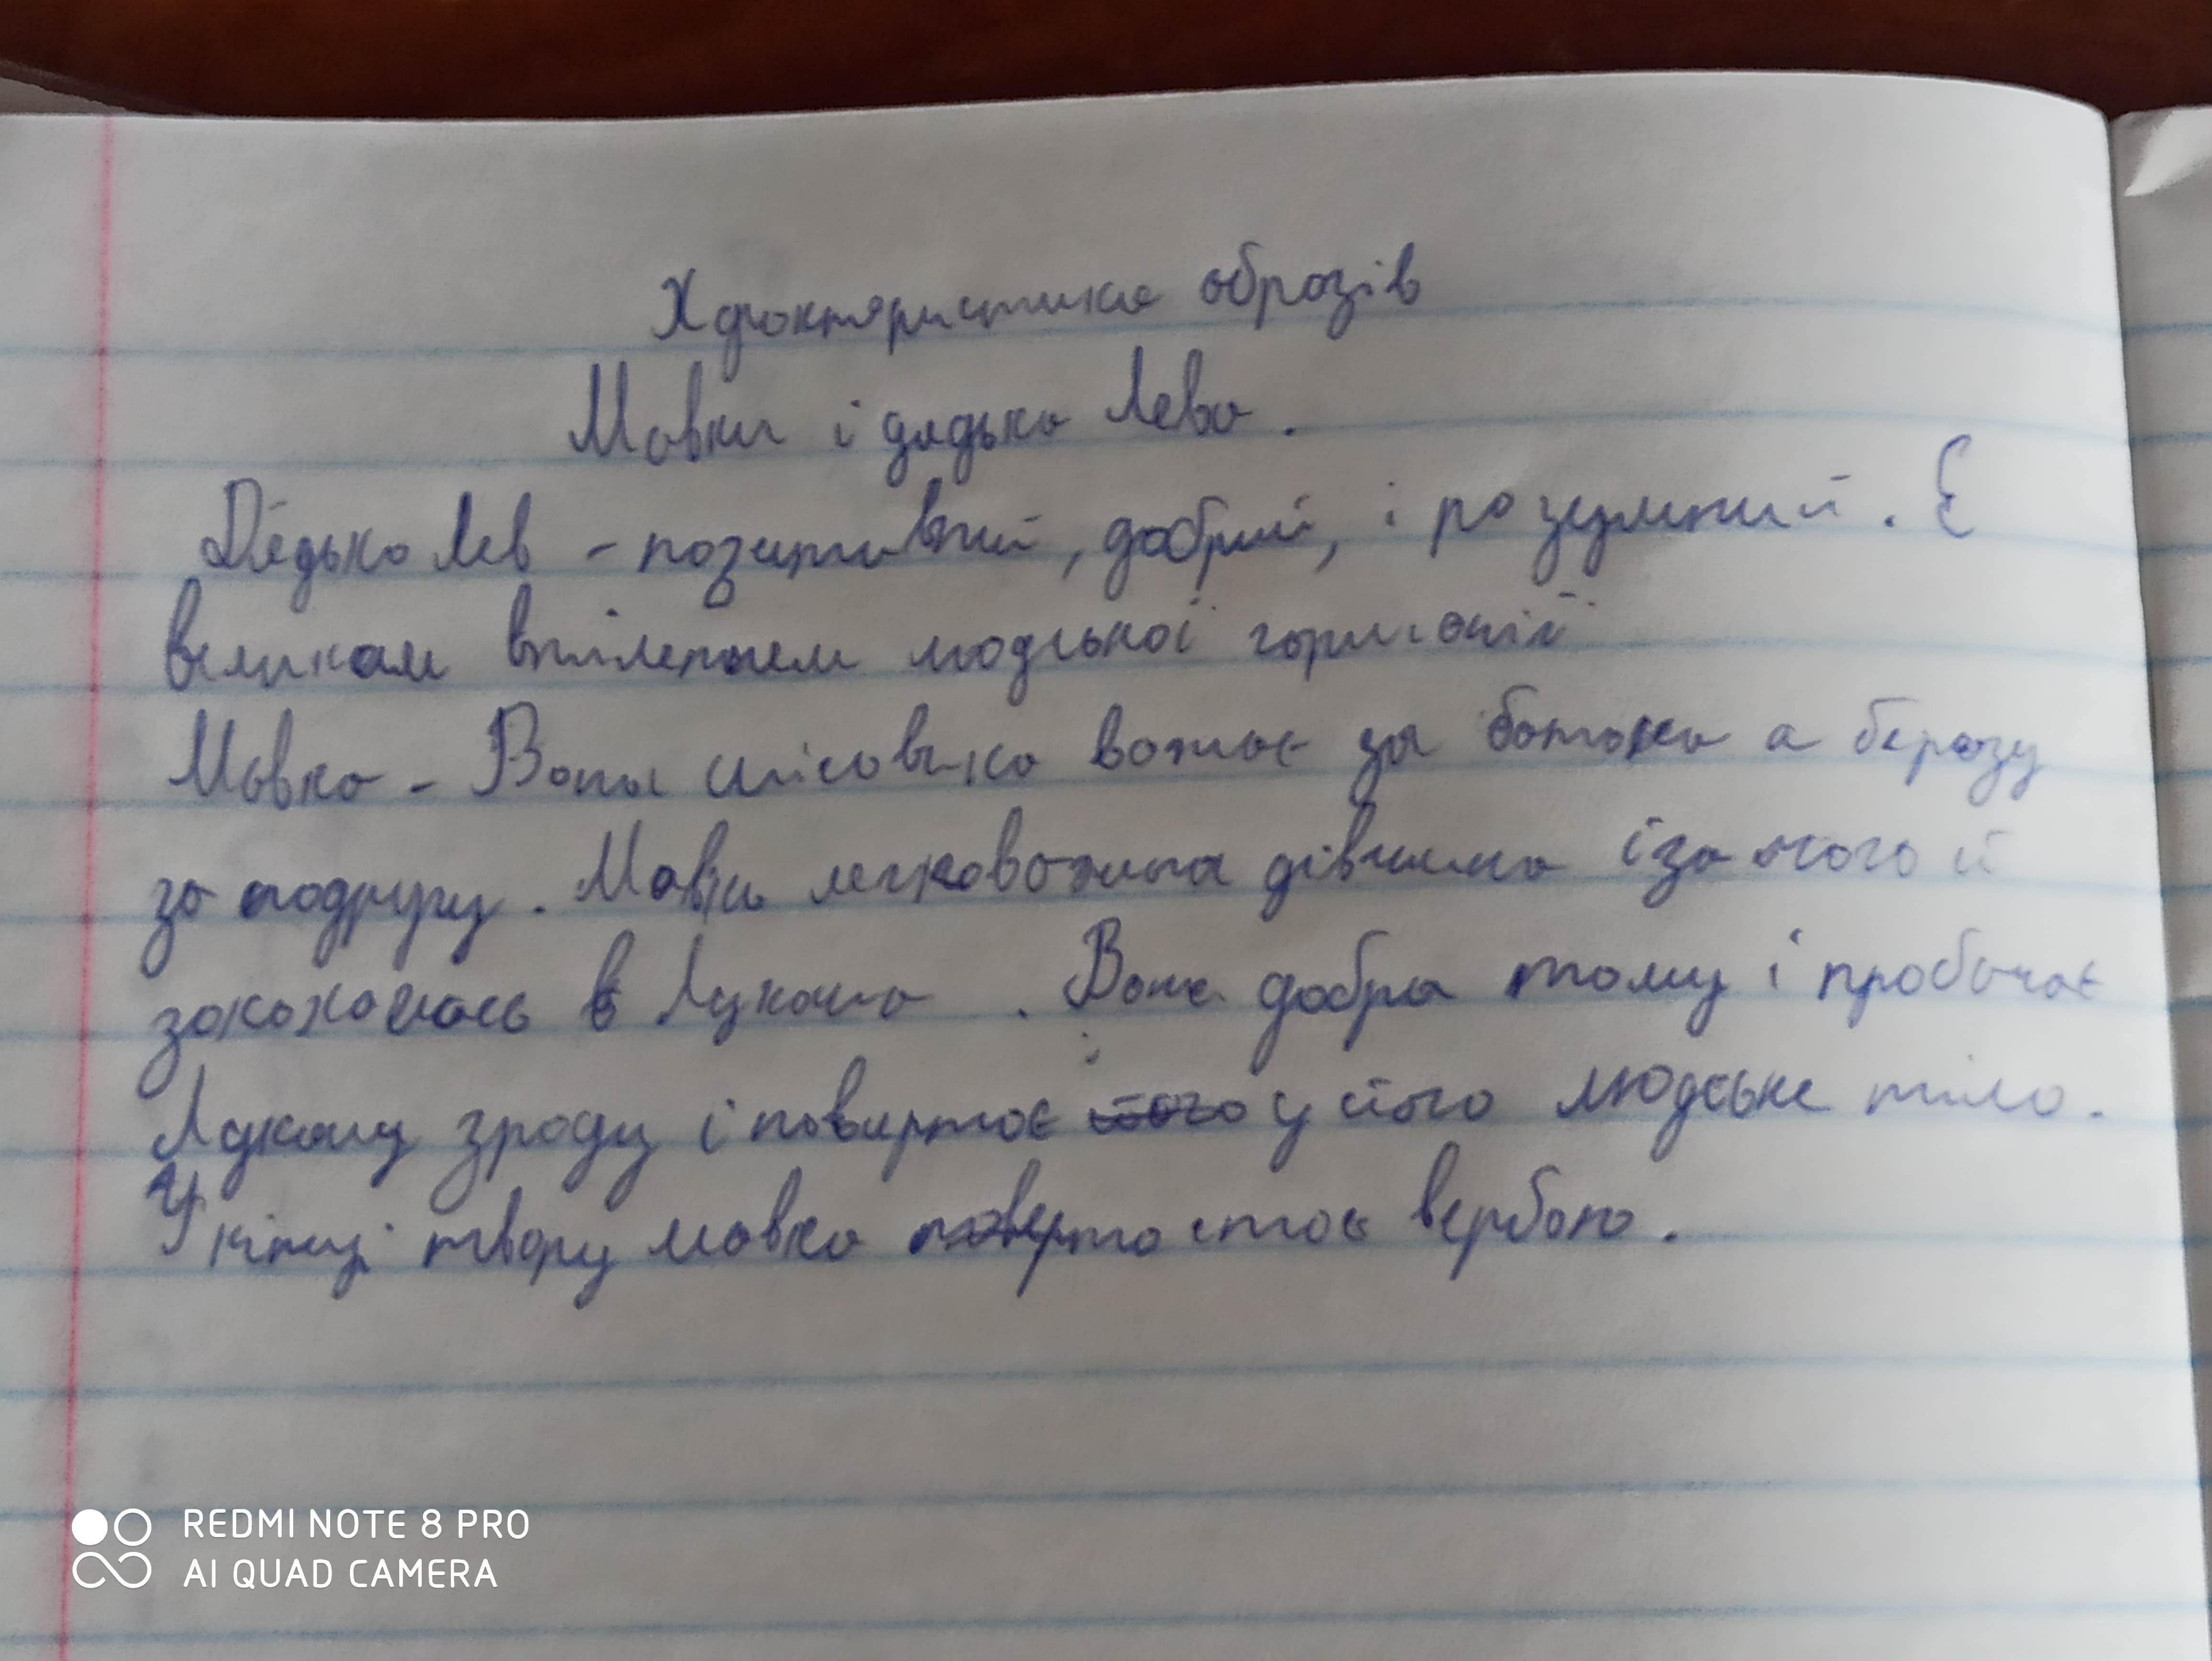 Характеристика образів
Мавки і дядька Лева.
Дядько Лев - позитивний, добрий, і розумний. Є
великам втіленням людської гармонії
Мавка - Вона лісовика важає за батька а березу
за подругу. Мавка легковажна дівчина і за чого й
закохалась в Лукаша. Вона добра тому і пробачає
Лукашу зраду і повертає у його людське тіло.
У кінці твору мавка стає вербою.
REDMI NOTE 8 PRO
AI QUAD CAMERA